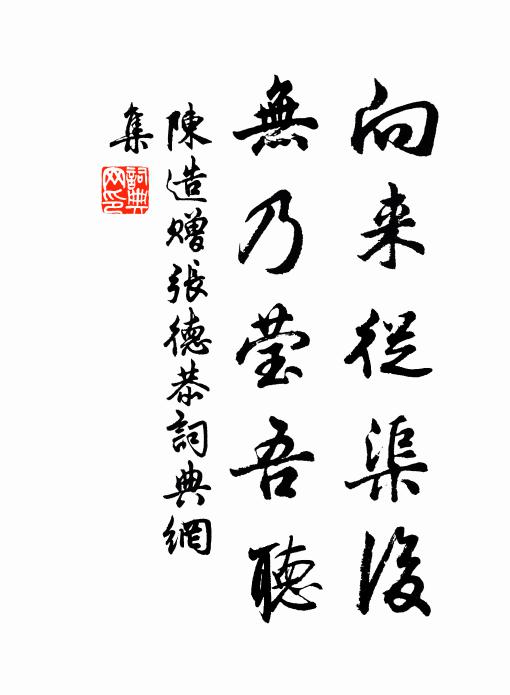 向来従渠後
無乃莹吾聽
陳造贈張德恭詞典網
集
詞典
网印